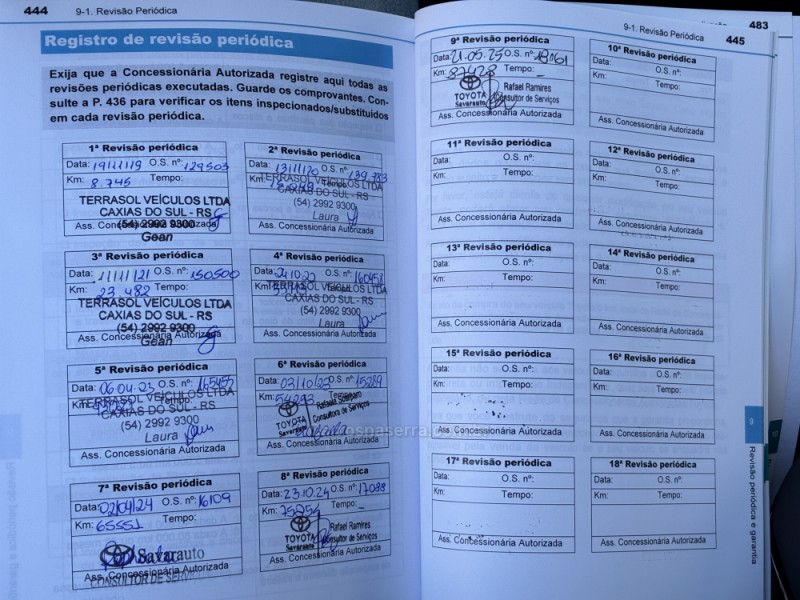 444
9-1. Revisão Periódica
Registro de revisão periódica
Exija que a Concessionária Autorizada registre aqui todas as
revisões periódicas executadas. Guarde os comprovantes. Con-
sulte a P. 436 para verificar os itens inspecionados/substituídos
em cada revisão periódica.
1ª Revisão periódica
Data: 19/11/19 O.S. nº: 129503
Km: 8.745 Tempo:
TERRASOL VEÍCULOS LTDA
CAXIAS DO SUL - RS
(54) 2992 9300
Ass. Concessionária Autorizada
Gean
2ª Revisão periódica
Data: 13/11/20 O.S. nº: 139.783
Km: Tempo:
TERRASOL VEÍCULOS LTDA
CAXIAS DO SUL - RS
(54) 2992 9300
Laura
Ass. Concessionária Autorizada
3ª Revisão periódica
Data: 11/11/21 O.S. nº: 150.500
Km: 23.482 Tempo:
TERRASOL VEÍCULOS LTDA
CAXIAS DO SUL - RS
(54) 2992 9300
Ass. Concessionária Autorizada
Gean
4ª Revisão periódica
Data: 24.10.22 O.S. nº:
Km: Tempo:
TERRASOL VEÍCULOS LTDA
CAXIAS DO SUL - RS
(54) 2992 9300
Laura
Ass. Concessionária Autorizada
5ª Revisão periódica
Data: 06.04.23 O.S. nº: 165455
Km: Tempo:
TERRASOL VEÍCULOS LTDA
CAXIAS DO SUL - RS
(54) 2992 9300
Laura
Ass. Concessionária Autorizada
6ª Revisão periódica
Data: 03/10/23 O.S. nº: 15289
Km: 54293 Tempo:
TOYOTA
Consultora de Serviços
Ass. Concessionária Autorizada
7ª Revisão periódica
Data: 02/04/24 O.S. nº: 16109
Km: 65551 Tempo:
Savarauto
Ass. Concessionária Autorizada
CONSULTOR DE SERVIÇOS
8ª Revisão periódica
Data: 23.10.24 O.S. nº: 17088
Km: Tempo:
TOYOTA
Savarauto
Rafael Ramires
Consultor de Serviços
Ass. Concessionária Autorizada
483
9-1. Revisão Periódica
445
9ª Revisão periódica
Data: 21.05.25 O.S. nº: 18161
Km: 87428 Tempo:
TOYOTA
Savarauto
Rafael Ramires
Consultor de Serviços
Ass. Concessionária Autorizada
10ª Revisão periódica
Data: O.S. nº:
Km: Tempo:
Ass. Concessionária Autorizada
11ª Revisão periódica
Data: O.S. nº:
Km: Tempo:
Ass. Concessionária Autorizada
12ª Revisão periódica
Data: O.S. nº:
Km: Tempo:
Ass. Concessionária Autorizada
13ª Revisão periódica
Data: O.S. nº:
Km: Tempo:
Ass. Concessionária Autorizada
14ª Revisão periódica
Data: O.S. nº:
Km: Tempo:
Ass. Concessionária Autorizada
15ª Revisão periódica
Data: O.S. nº:
Km: Tempo:
Ass. Concessionária Autorizada
16ª Revisão periódica
Data: O.S. nº:
Km: Tempo:
Ass. Concessionária Autorizada
17ª Revisão periódica
Data: O.S. nº:
Km: Tempo:
Ass. Concessionária Autorizada
18ª Revisão periódica
Data: O.S. nº:
Km: Tempo:
Ass. Concessionária Autorizada
9
Revisão periódica e garantia